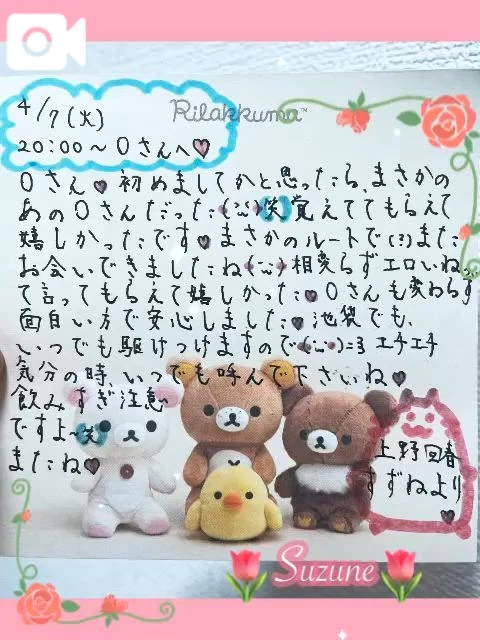 Rilakkuma™
4/7(火)
20:00～Oさんへ♥
Oさん♥初めましてかと思ったら、まさかの
あのOさんだった(笑)覚えててもらえて
嬉しかったです♥まさかのルートで(!?)また
お会いできましたね(¨)相変らずエロいねっ
て言ってもらえて嬉しかった♥Oさんも変わらず
面白い方で安心しました♥池袋でも、
いつでも駆けつけますので(¨)=3 エチエチ
気分の時、いつでも呼んで下さいね♥
飲みすぎ注意
ですよ～笑
またね♥
上野回春
すずねより
♥
Suzune